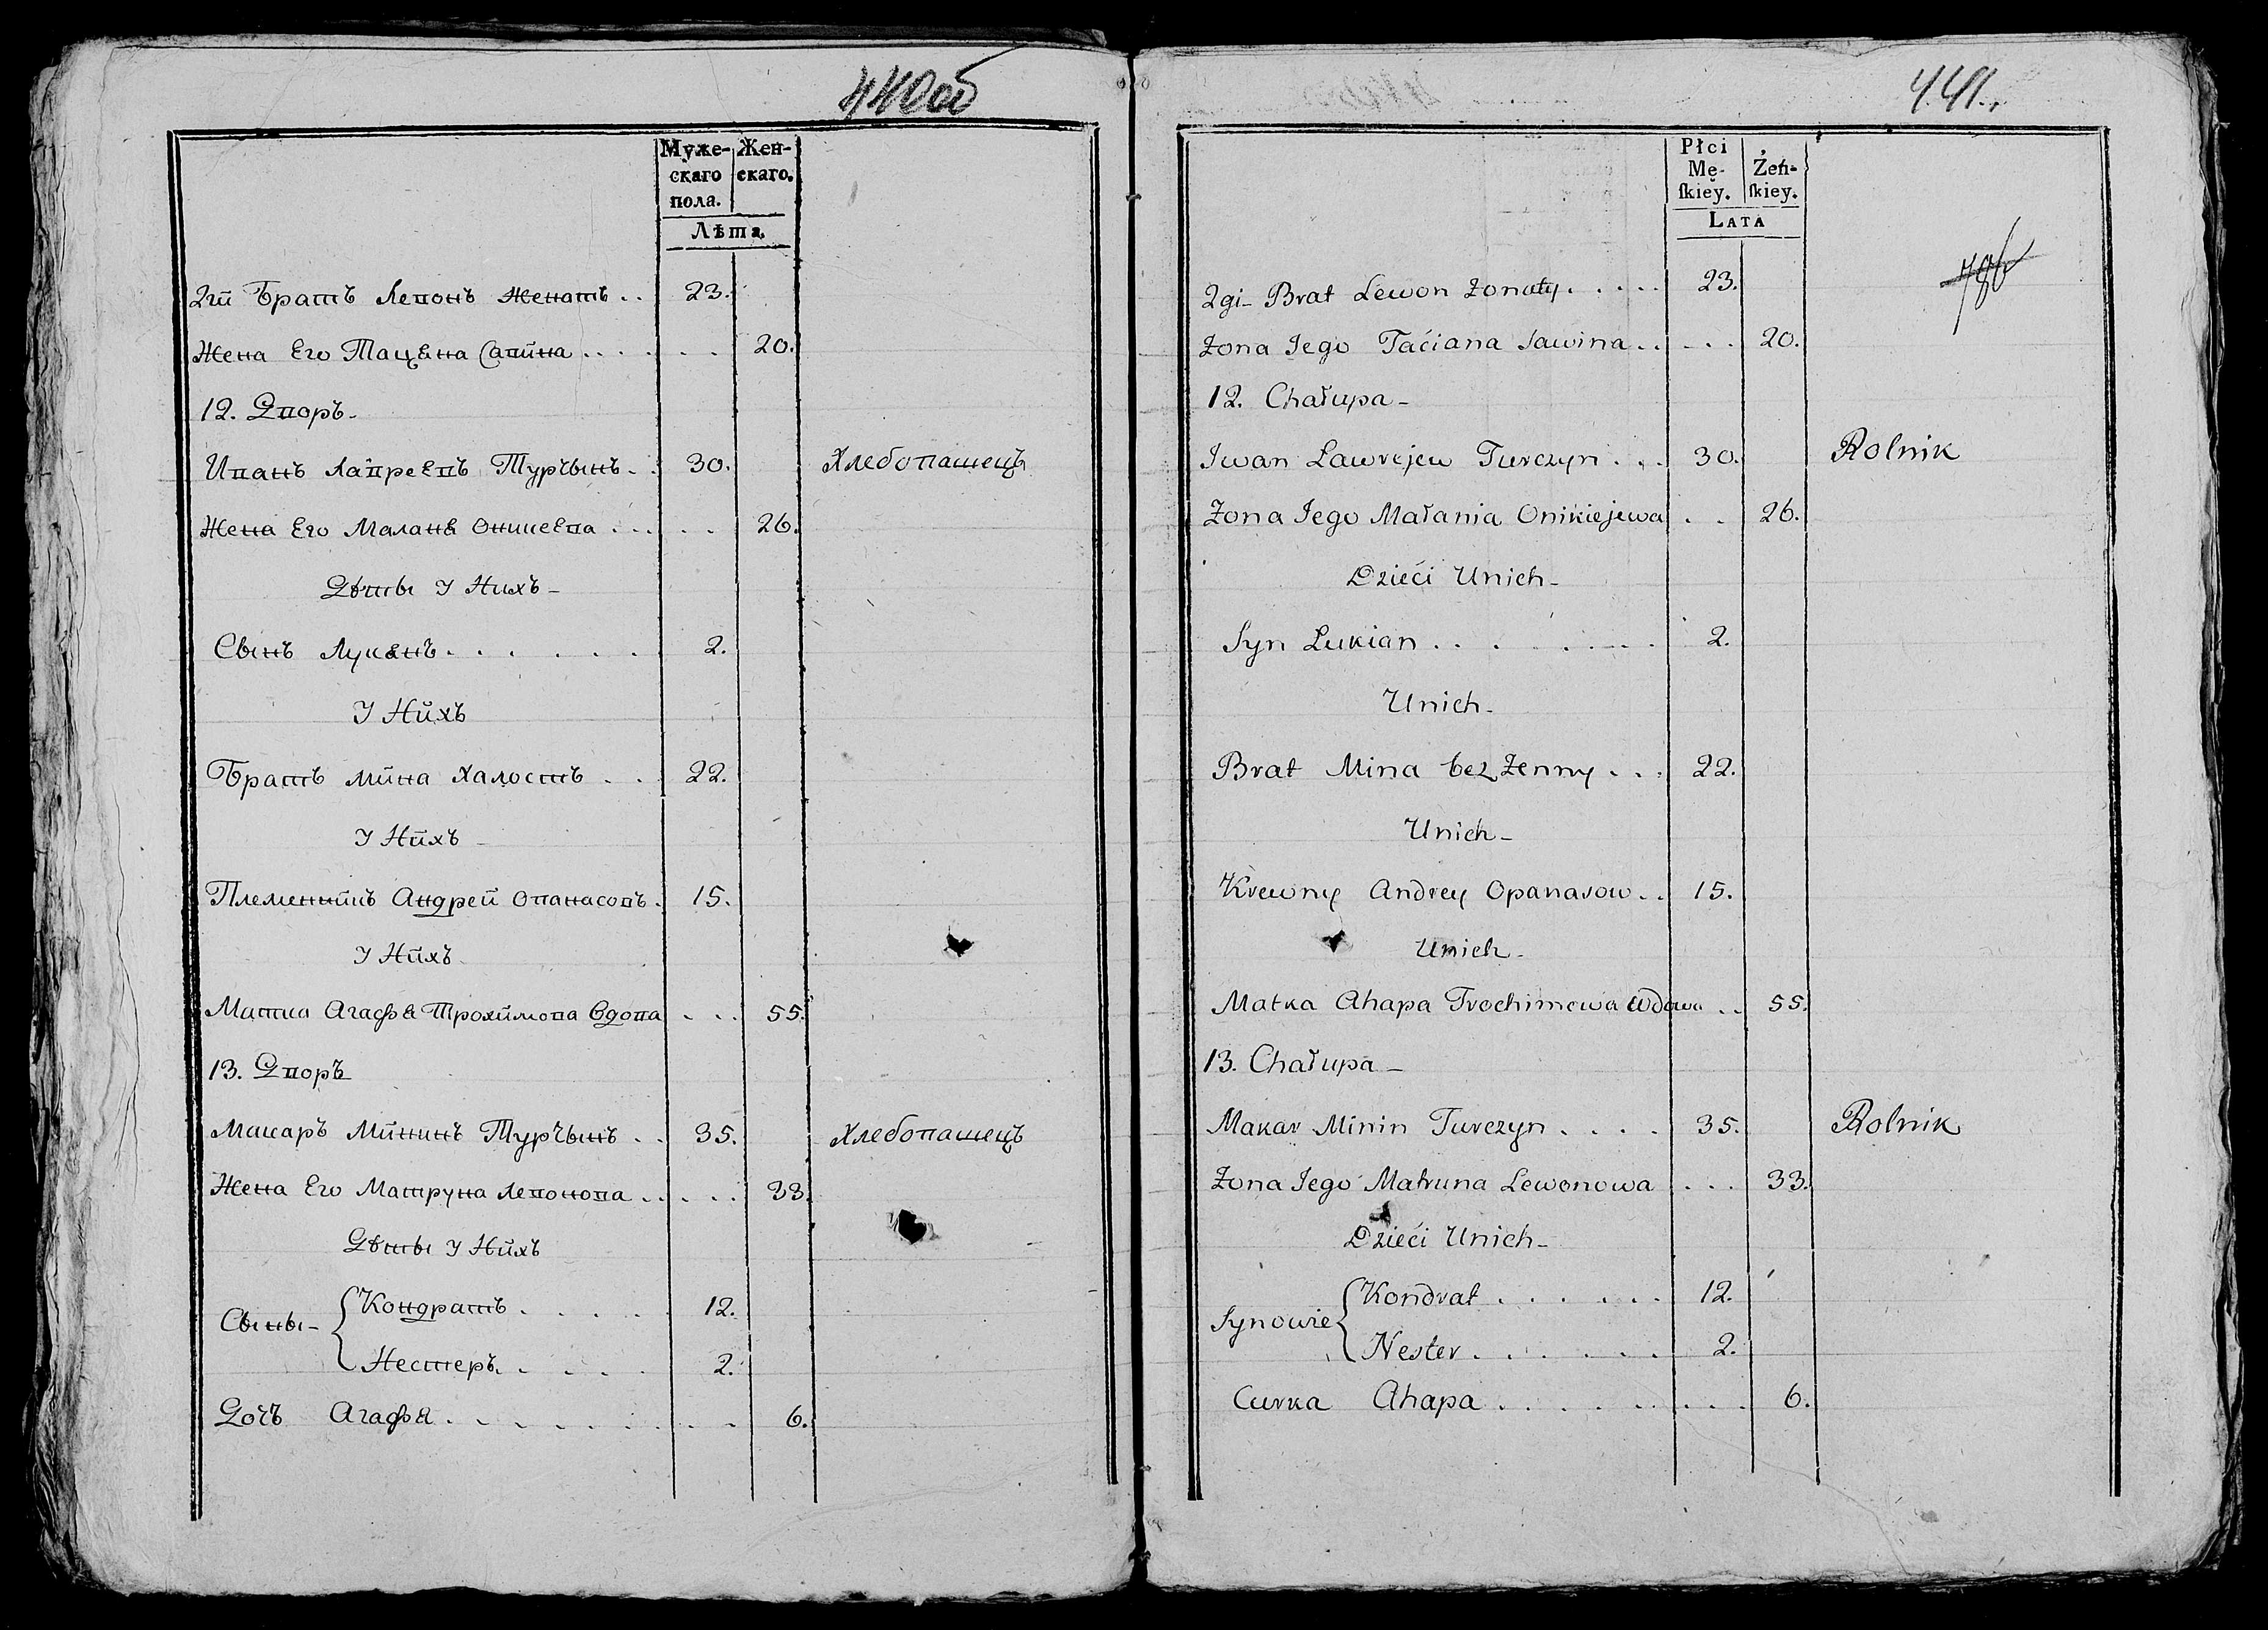 440об
Муже- Жен-
скаго скаго.
пола.
Лѣта.
2й Братъ Левонъ Женатъ . . 23.
Жена Его Тацяна Савина . . . . . . 20.
12. Дворъ -
Иванъ Лавреевъ Турчынъ - . 30. Хлебопашецъ
Жена Его Маланя Оникеева . . . . . 26.
Дѣты У Нихъ -
Сынъ Лукянъ . . . . . . 2.
У Нихъ
Братъ Мина Халостъ . . . 22.
У Нихъ -
Племенникъ Андрей Опанасовъ . 15.
У Нихъ
Матка Агафя Трохимова Вдова . . . 55.
13. Дворъ
Макаръ Мининъ Турчынъ . . 35. Хлебопашецъ
Жена Его Матруна Левонова . . . . . 33.
Дѣты У Нихъ
Сыны - Кондратъ . . . . . 12.
Нестеръ . . . . . 2.
Дочъ Агафя . . . . . . . . . 6.
441.
Płci
Mę- Żeń-
ſkiey. ſkiey.
LATA
2gi - Brat Lewon Żonaty . . . . . 23.
Żona Jego Taćiana Sawina . . - . . 20.
12. Chałupa -
Iwan Lawrejew Turczyn . . . 30. Rolnik
Żona Jego Małania Onikiejewa . . 26.
Dzieći Unich -
Syn Lukian . . . . . . . . 2.
Unich -
Brat Mina bez Żenny . . . 22.
Unich -
Krewny Andrey Opanasow . . 15.
Unich -
Matka Ahapa Trochimowa Wdowa . . 55.
13. Chałupa -
Makar Minin Turczyn . . . . 35. Rolnik
Żona Jego Matruna Lewonowa . . . 33.
Dzieći Unich -
Synowie Kondrat . . . . . . 12.
Nester . . . . . . 2.
Curka Ahapa . . . . . . . . . 6.